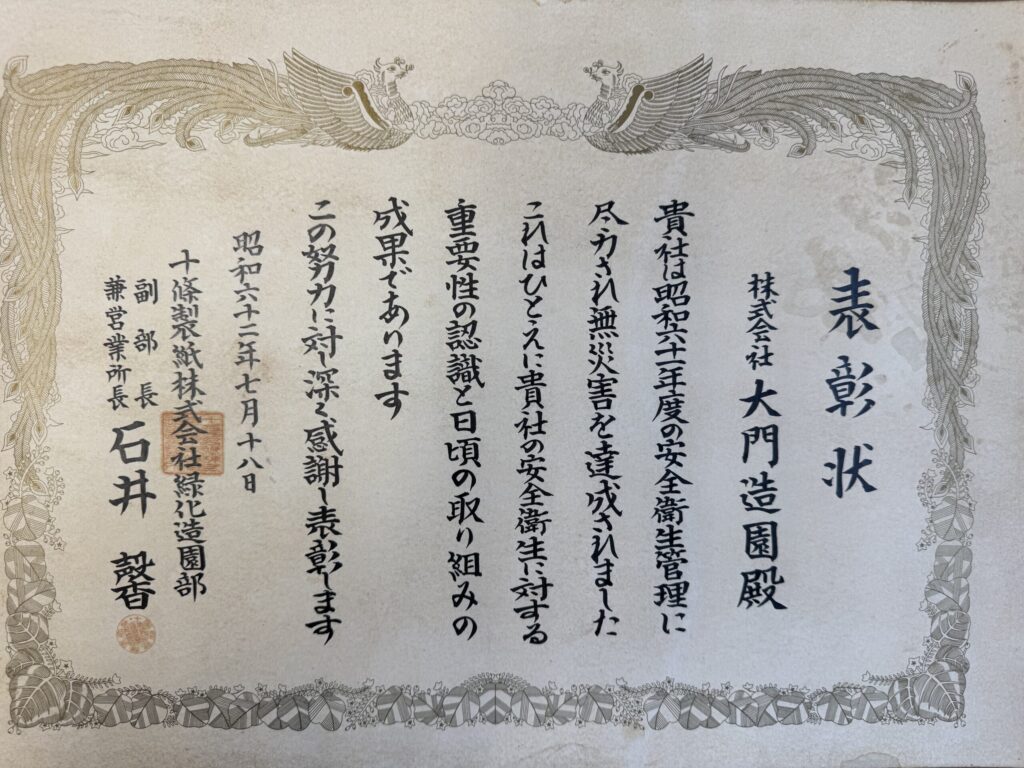 表彰状
株式会社 大門造園殿
貴社は昭和六十一年度の安全衛生管理に
尽力され無災害を達成されました
これはひとえに貴社の安全衛生に対する
重要性の認識と日頃の取り組みの
成果であります
この努力に対し深く感謝し表彰します
昭和六十二年七月十八日
十條製紙株式会社緑化造園部
副部長
兼営業所長
石井